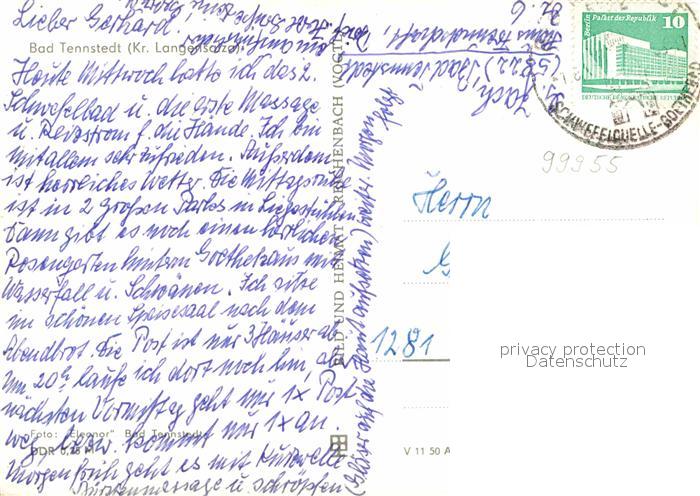 Lieber Gerhard!
Bad Tennstedt (Kr. Langensalza)
Heute Mittwoch hatte ich das 2.
Schwefelbad u. die erste Massage
u. Reizstrom f. die Hände. Ich bin
mit allem sehr zufrieden. Außerdem
ist herrliches Wetter. Die Mittagsruhe
ist in 2 großen Parks in Liegestühlen
Dann gibt es noch einen herrlichen
Rosengarten hinterm Goethehaus mit
Wasserfall u. Schwänen. Ich sitze
im schönen Speisesaal nach dem
Abendbrot. Die Post ist nur 3 Häuser ab
Um 20h laufe ich dort noch hin, da
nächsten Vormittag geht nur 1x Post
weg, bzw. kommt nur 1x an.
Foto: "Eleonor" Bad Tennstedt
DDR 0,25 M
Morgen früh geht es mit Kurwelle
Bürstenmassage u. schröpfen
(Gläser auf die Haut aufsetzen) weiter. Morgen
folgt
BILD UND HEIMAT REICHENBACH (VOGTL)
(5822) Bad Tennstedt
Berlin Palast der Republik
10
DEUTSCHE DEMOKRATISCHE REPUBLIK
SCHWEFELQUELLE-GOETHEBAD
99955
Herrn
G
1281
privacy protection
Datenschutz
V 11 50 A